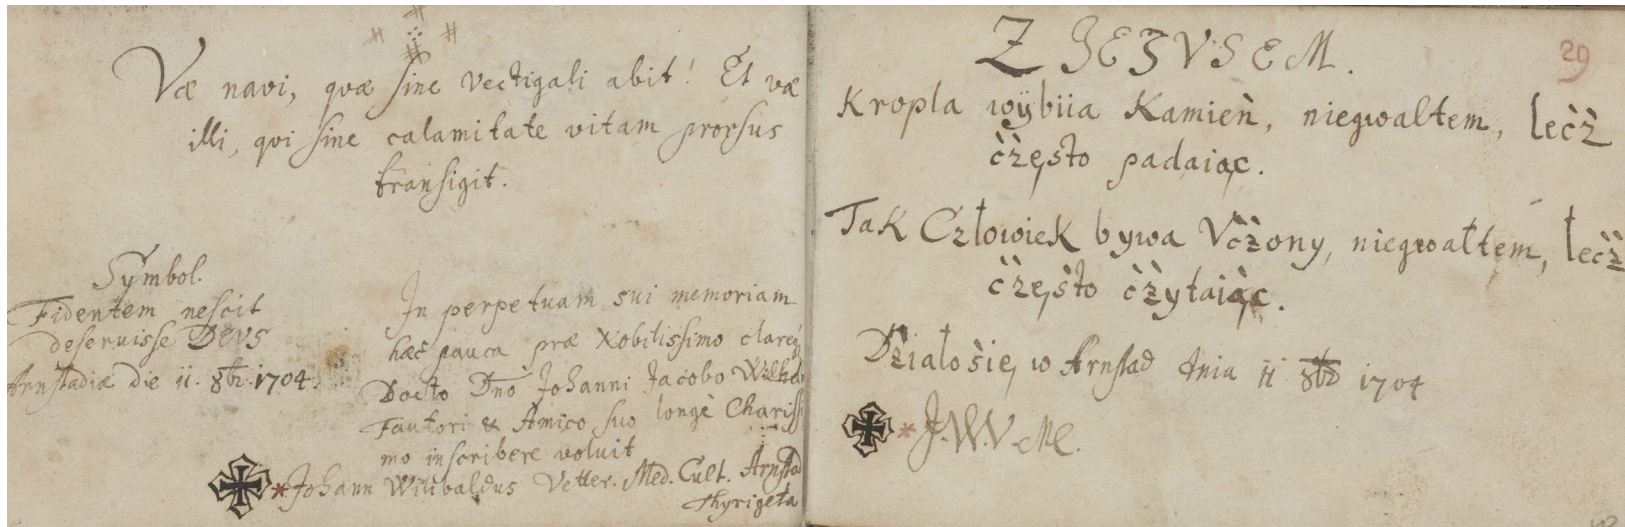 Væ navi, quæ sine vectigali abit! Et væ
illi, qui sine calamitate vitam prorsus
transigit.
Symbol.
Fidentem nescit
deseruisse DEVS
Arnstadiæ die 11. 8br. 1704.
In perpetuam sui memoriam
hæc pauca præ Nobilissimo
Docto Dno Johanni Jacobo
Fautori & Amico suo longè Chariss
mo inscribere voluit
Johann Wilibaldus Vetter. Med. Cult. Arnstad
Thyrigeta
Z JEZVSEM.
29
Kropla wÿbiia Kamień, niegwaltem, lećż
ćżęsto padaiąc.
Tak Człowiek bywa Vćżony, niegwałtem, lećż
ćżęsto ćżytaiąc.
Działośię, w Arnstad dnia 11 8br 1704
J.W.V.M.C.